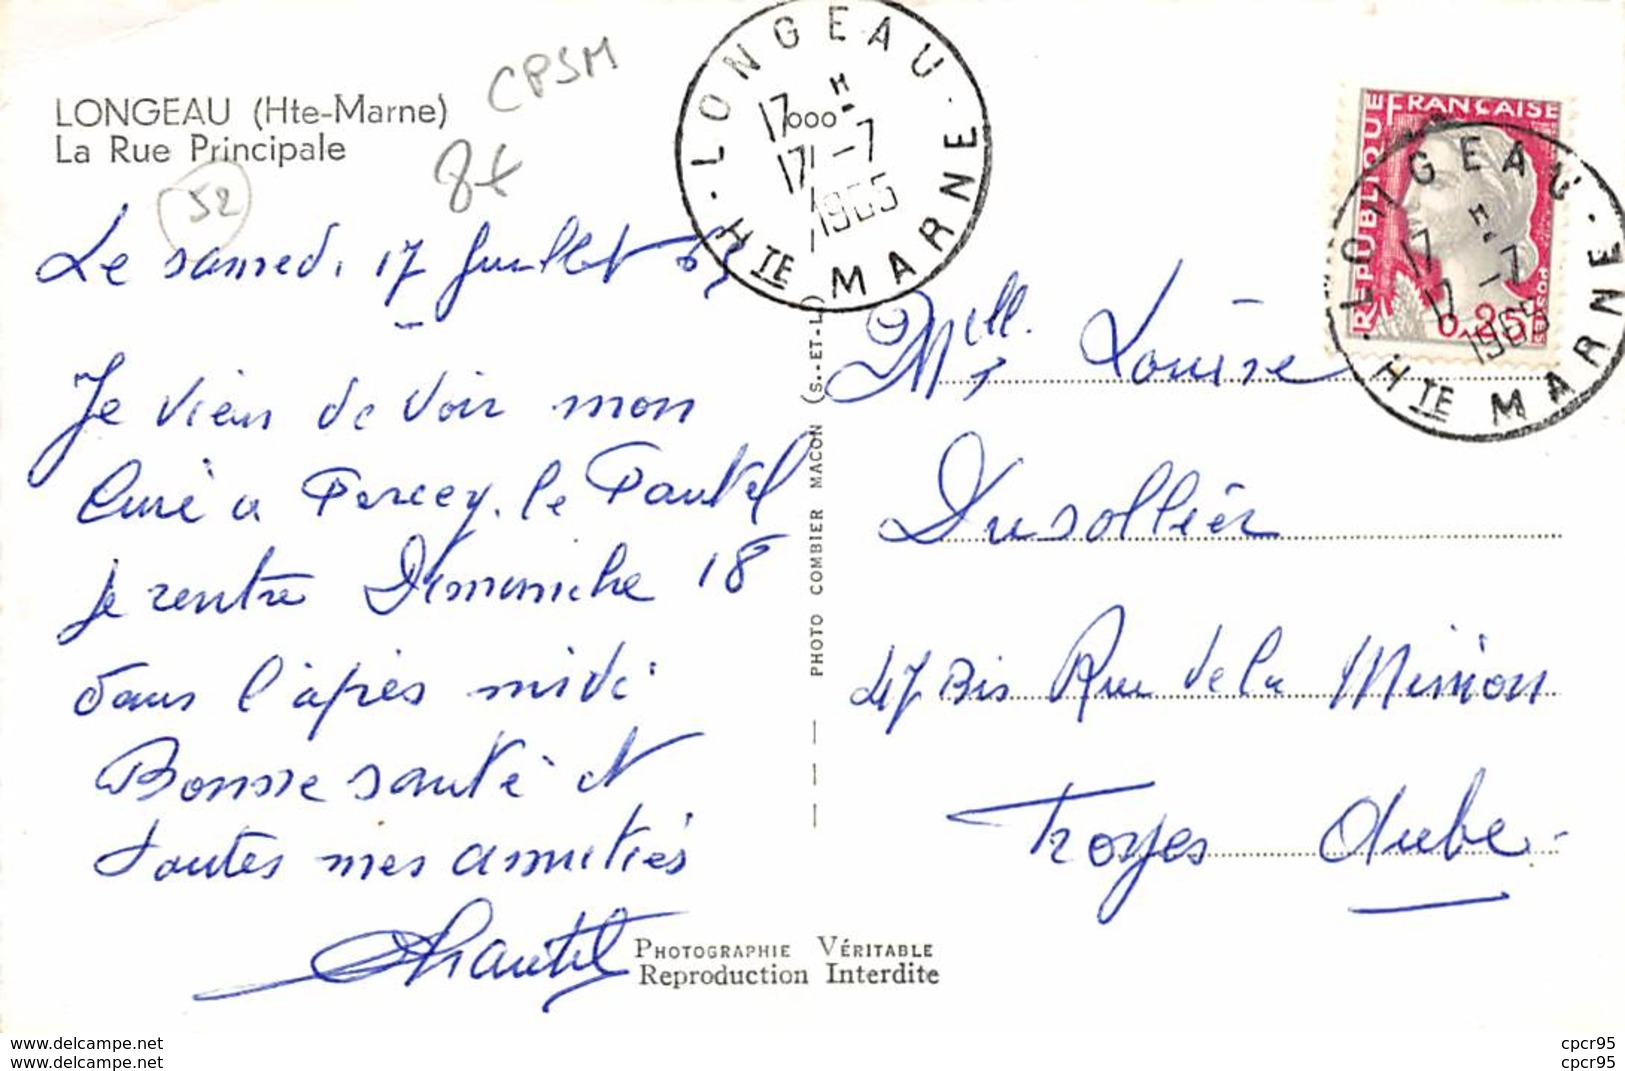 LONGEAU (Hte-Marne)
La Rue Principale
CPSM
8+
52
LONGEAU
17 H
000
17 -7
1965
HTE MARNE
RÉPUBLIQUE FRANÇAISE
POSTES
0,25
LONGEAU
17 H
17 -7
1965
HTE MARNE
Le samedi 17 Juillet 65
Je viens de voir mon
Curé a Percey. le Pautel
je rentre Dimanche 18
dans l'après midi
Bonne santé et
toutes mes amitiés
Chantel
PHOTO COMBIER MACON (S.-ET-L.)
Mlle. Louise
Dusollier
47 Bis Rue de la Mission
Troyes Aube
PHOTOGRAPHIE VÉRITABLE
Reproduction Interdite
www.delcampe.net
www.delcampe.net
cpcr95
cpcr95